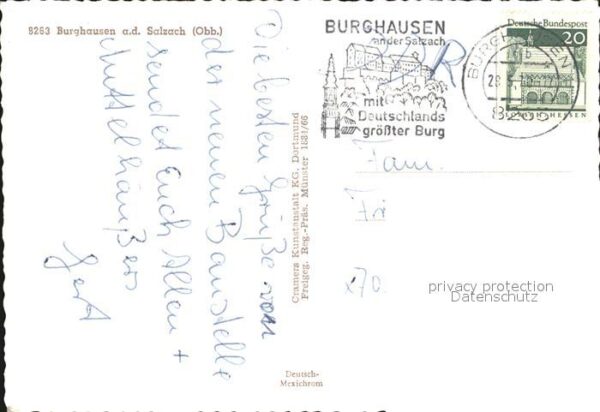 8263 Burghausen a.d. Salzach (Obb.)
Die besten Grüße von
der neuen Baustelle
sendet Euch Allen +
Gert
Cramers Kunstaustalt KG. Dortmund
Freigeg. Reg.-Präs. Münster 1534/66
Deutsch-
Mexichrom
BURGHAUSEN
an der Salzach
mit
Deutschlands
größter Burg
BURGHAUSEN
8263
Deutsche Bundespost
20
Fam.
Fri
x70.
privacy protection
Datenschutz